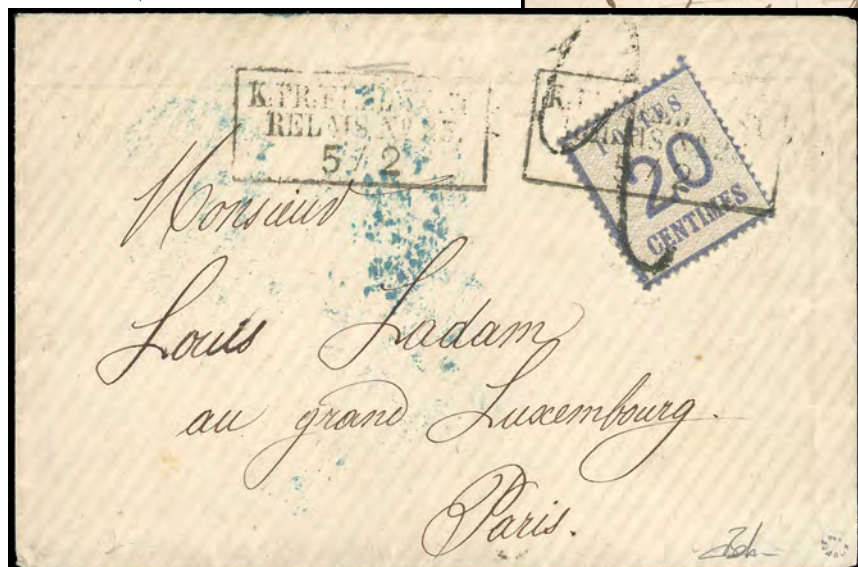 K.PR.
RELAIS No
5/2
POSTES
20
CENTIMES
Monsieur
Louis Ladam
au grand Luxembourg.
Paris.